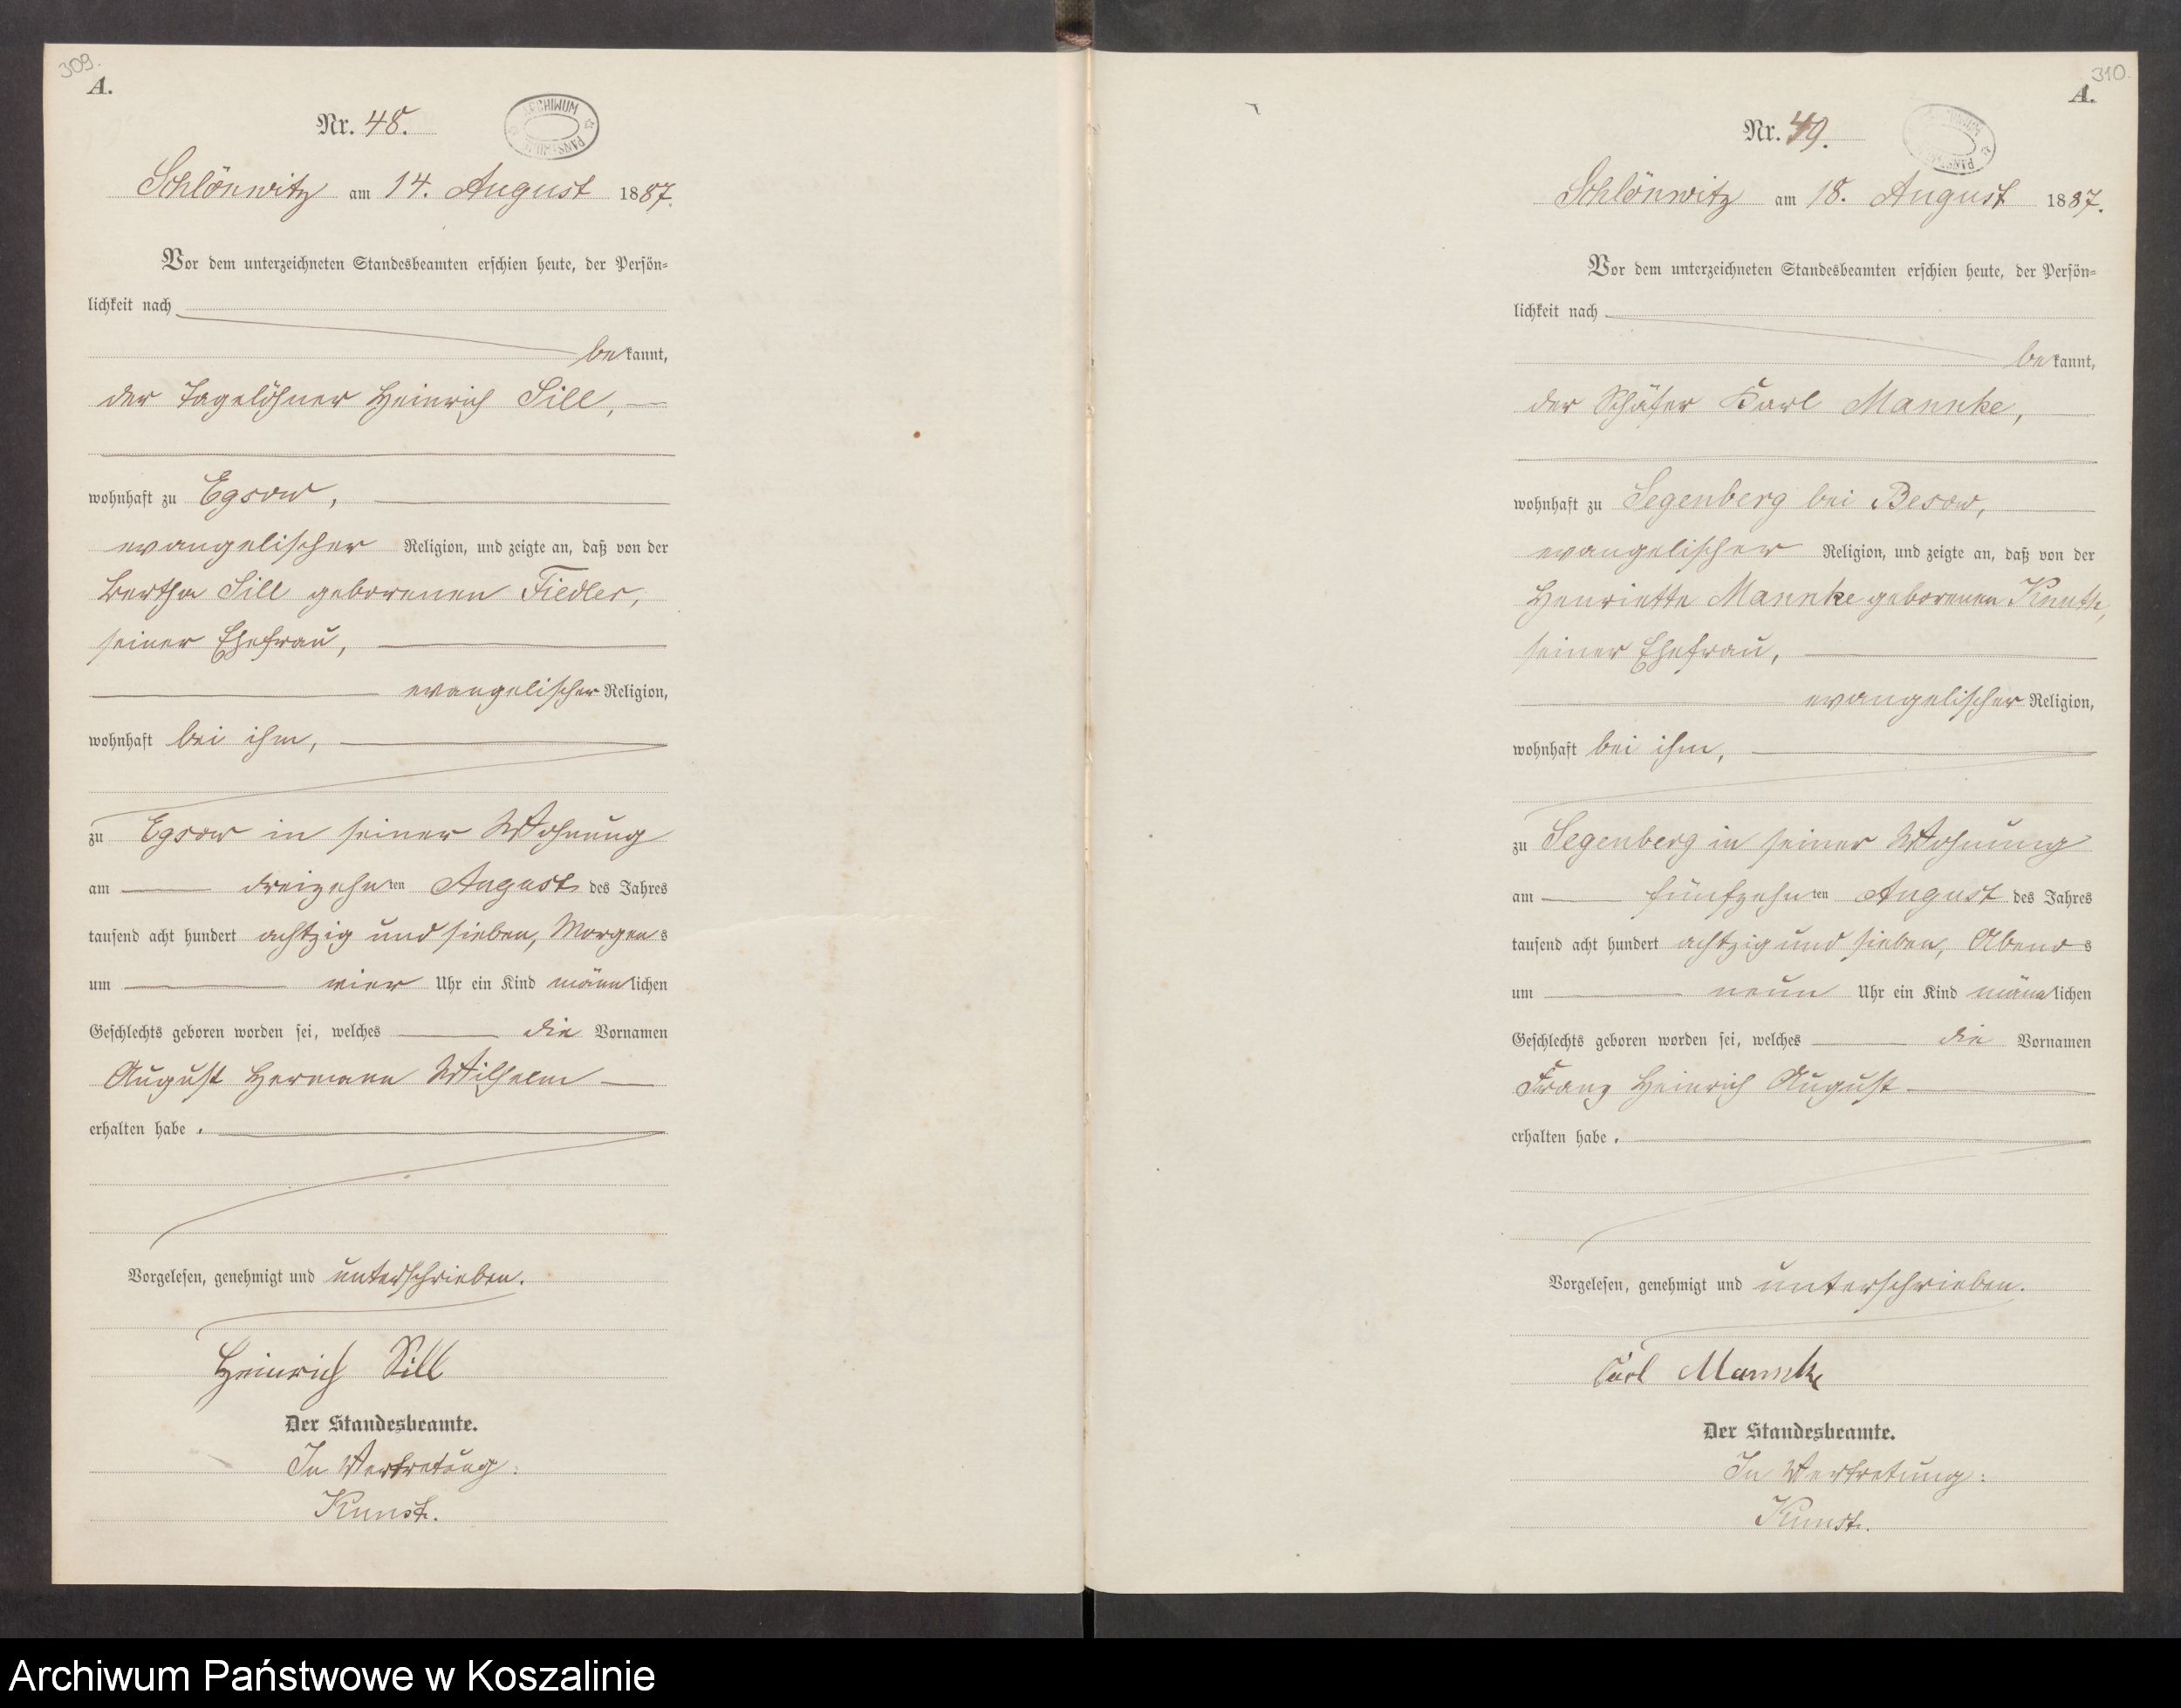 309.
A.
Nr. 48.
ARCHIWUM
PAŃSTWOWE
Schlönwitz am 14. August 1887.
Vor dem unterzeichneten Standesbeamten erschien heute, der Persön-
lichkeit nach
bekannt,
der Tagelöhner Heinrich Sill,
wohnhaft zu Egsow,
evangelischer Religion, und zeigte an, daß von der
Bertha Sill geborenen Fiedler,
seiner Ehefrau,
evangelischer Religion,
wohnhaft bei ihm,
zu Egsow in seiner Wohnung
am dreizehnten August des Jahres
tausend acht hundert achtzig und sieben, Morgens
um vier Uhr ein Kind männlichen
Geschlechts geboren worden sei, welches die Vornamen
August Hermann Wilhelm
erhalten habe.
Vorgelesen, genehmigt und unterschrieben.
Heinrich Sill
Der Standesbeamte.
In Vertretung:
Kunst.
310.
A.
Nr. 49.
Schlönwitz am 18. August 1887.
Vor dem unterzeichneten Standesbeamten erschien heute, der Persön-
lichkeit nach
bekannt,
der Schäfer Karl Mannke,
wohnhaft zu Segenberg bei Besow,
evangelischer Religion, und zeigte an, daß von der
Henriette Mannke geborenen Knuth,
seiner Ehefrau,
evangelischer Religion,
wohnhaft bei ihm,
zu Segenberg in seiner Wohnung
am fünfzehnten August des Jahres
tausend acht hundert achtzig und sieben, Abends
um neun Uhr ein Kind männlichen
Geschlechts geboren worden sei, welches die Vornamen
Franz Heinrich August
erhalten habe.
Vorgelesen, genehmigt und unterschrieben.
Carl Mannke
Der Standesbeamte.
In Vertretung:
Kunst.
Archiwum Państwowe w Koszalinie